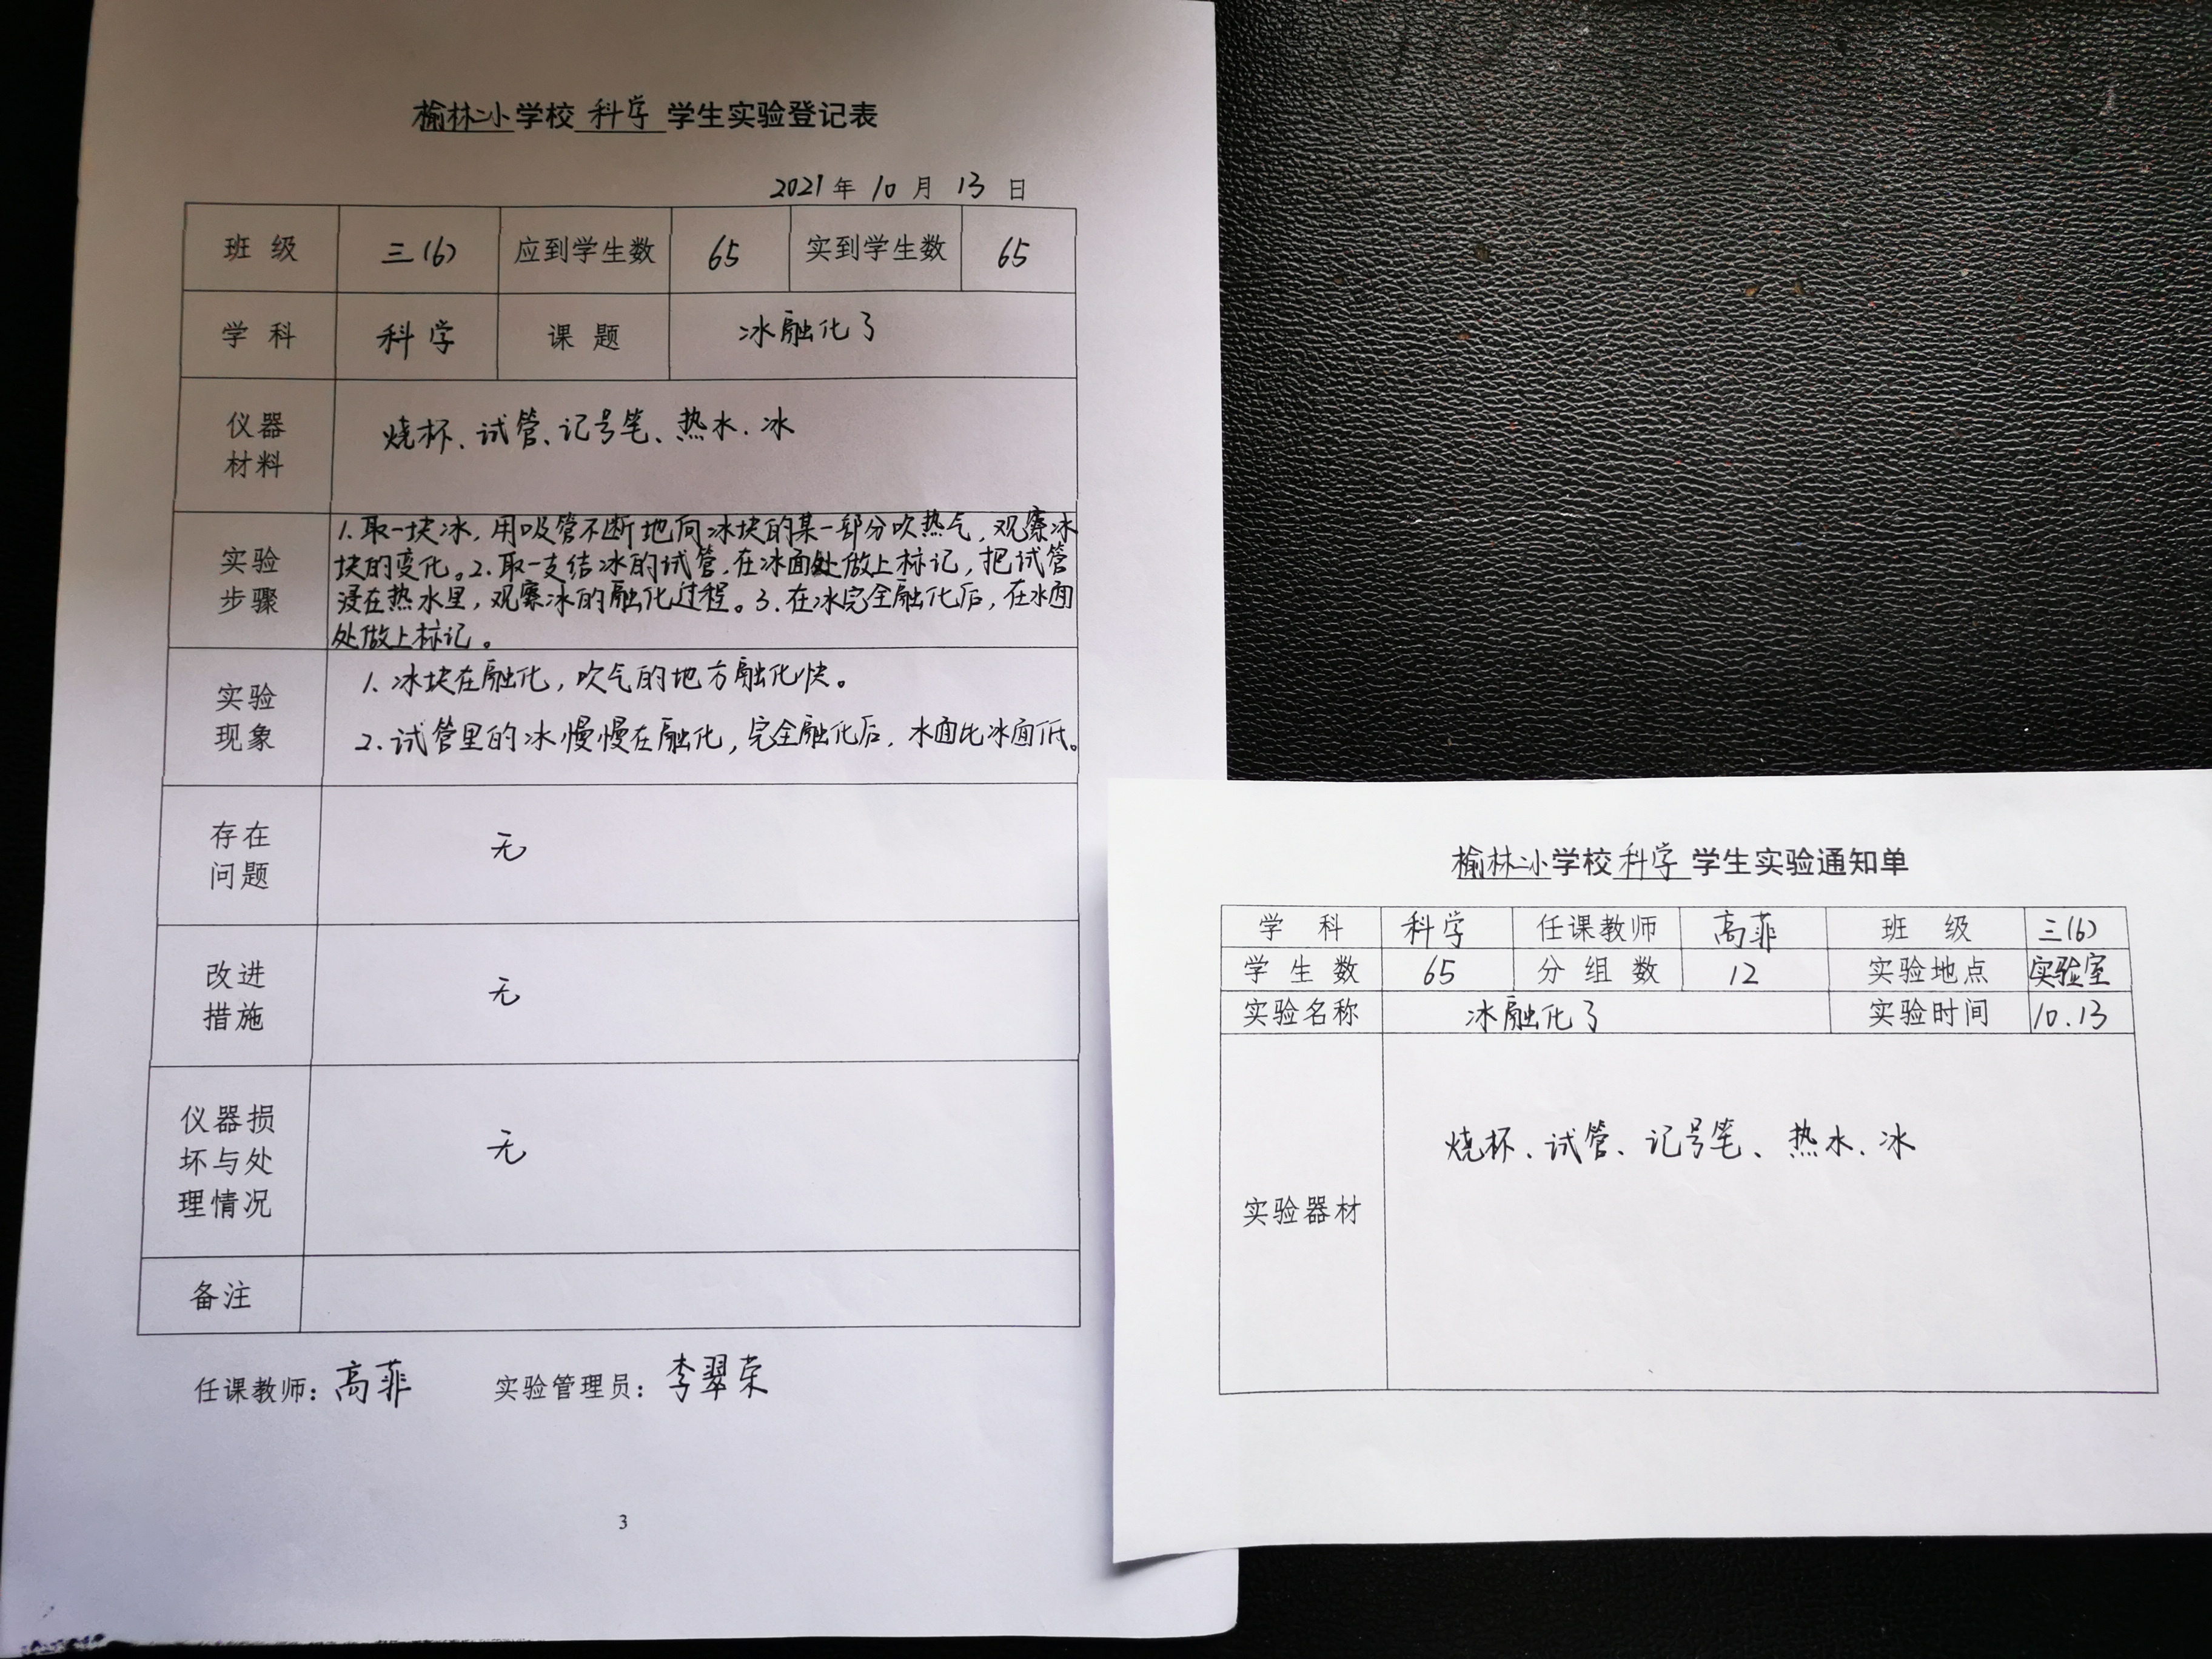 榆林二小学校 科学 学生实验登记表
2021 年 10 月 13 日
班 级 三(6) 应到学生数 65 实到学生数 65
学 科 科学 课 题 冰融化了
仪器
材料
烧杯、试管、记号笔、热水、冰
实验
步骤
1.取一块冰,用吸管不断地向冰块的某一部分吹热气,观察冰
块的变化。2.取一支结冰的试管,在冰面处做上标记,把试管
浸在热水里,观察冰的融化过程。3.在冰完全融化后,在水面
处做上标记。
实验
现象
1、冰块在融化,吹气的地方融化快。
2.试管里的冰慢慢在融化,完全融化后,水面比冰面低。
存在
问题
无
改进
措施
无
仪器损
坏与处
理情况
无
备注
任课教师:高菲 实验管理员:李翠荣
3
榆林二小学校 科学 学生实验通知单
学 科 科学 任课教师 高菲 班 级 三(6)
学 生 数 65 分 组 数 12 实验地点 实验室
实验名称 冰融化了 实验时间 10.13
实验器材
烧杯、试管、记号笔、热水、冰